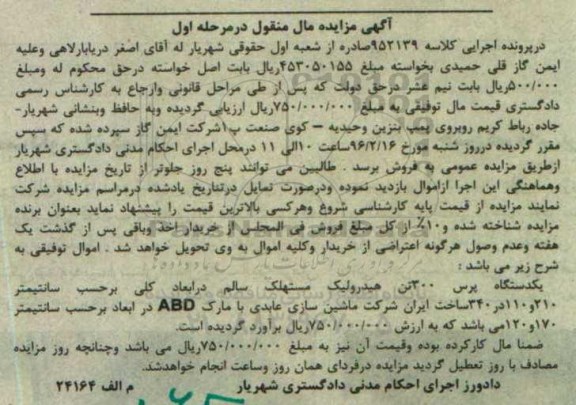 آگهی مزایده مال منقول درمرحله اول
درپرونده اجرایی کلاسه ۹۵۲۱۳۹صادره از شعبه اول حقوقی شهریار له آقای اصغر دریابارلاهی وعلیه
ایمن گاز قلی حمیدی بخواسته مبلغ ۴۵۳۰۵۰۱۵۵ریال بابت اصل خواسته درحق محکوم له ومبلغ
۵۰۰/۰۰۰ریال بابت نیم عشر درحق دولت که پس از طی مراحل قانونی وارجاع به کارشناس رسمی
دادگستری قیمت مال توقیفی به مبلغ ۷۵۰/۰۰۰/۰۰۰ریال ارزیابی گردیده وبه حافظ وبنشانی شهریار-
جاده رباط کریم روبروی پمپ بنزین وحیدیه – کوی صنعت پ۱شرکت ایمن گاز سپرده شده که سپس
مقرر گردیده درروز شنبه مورخ ۹۶/۲/۱۶ساعت ۱۰الی ۱۱ درمحل اجرای احکام مدنی دادگستری شهریار
ازطریق مزایده عمومی به فروش برسد . طالبین می توانند پنج روز جلوتر از تاریخ مزایده با اطلاع
وهماهنگی این اجرا ازاموال بازدید نموده ودرصورت تمایل درتاریخ یادشده درمراسم مزایده شرکت
نمایند مزایده از قیمت پایه کارشناسی شروع وهرکسی بالاترین قیمت را پیشنهاد نماید بعنوان برنده
مزایده شناخته شده و۱۰٪از کل مبلغ فروش فی المجلس از خریدار اخذ وباقی پس از گذشت یک
هفته وعدم وصول هرگونه اعتراضی از خریدار وکلیه اموال به وی تحویل خواهد شد . اموال توقیفی به
شرح زیر می باشد :
یکدستگاه پرس ۳۰۰تن هیدرولیک مستهلک سالم درابعاد کلی برحسب سانتیمتر
۲۱۰و۱۱۰در۳۴۰ساخت ایران شرکت ماشین سازی عابدی با مارک ABD در ابعاد برحسب سانتیمتر
۱۷۰و۱۲۰می باشد که به ارزش ۷۵۰/۰۰۰/۰۰۰ریال برآورد گردیده است.
ضمنا مال کارکرده بوده وقیمت آن نیز به مبلغ ۷۵۰/۰۰۰/۰۰۰ریال می باشد وچنانچه روز مزایده
مصادف با روز تعطیل گردید مزایده درفردای همان روز وساعت انجام خواهدشد.
دادورز اجرای احکام مدنی دادگستری شهریار م الف ۲۴۱۶۴